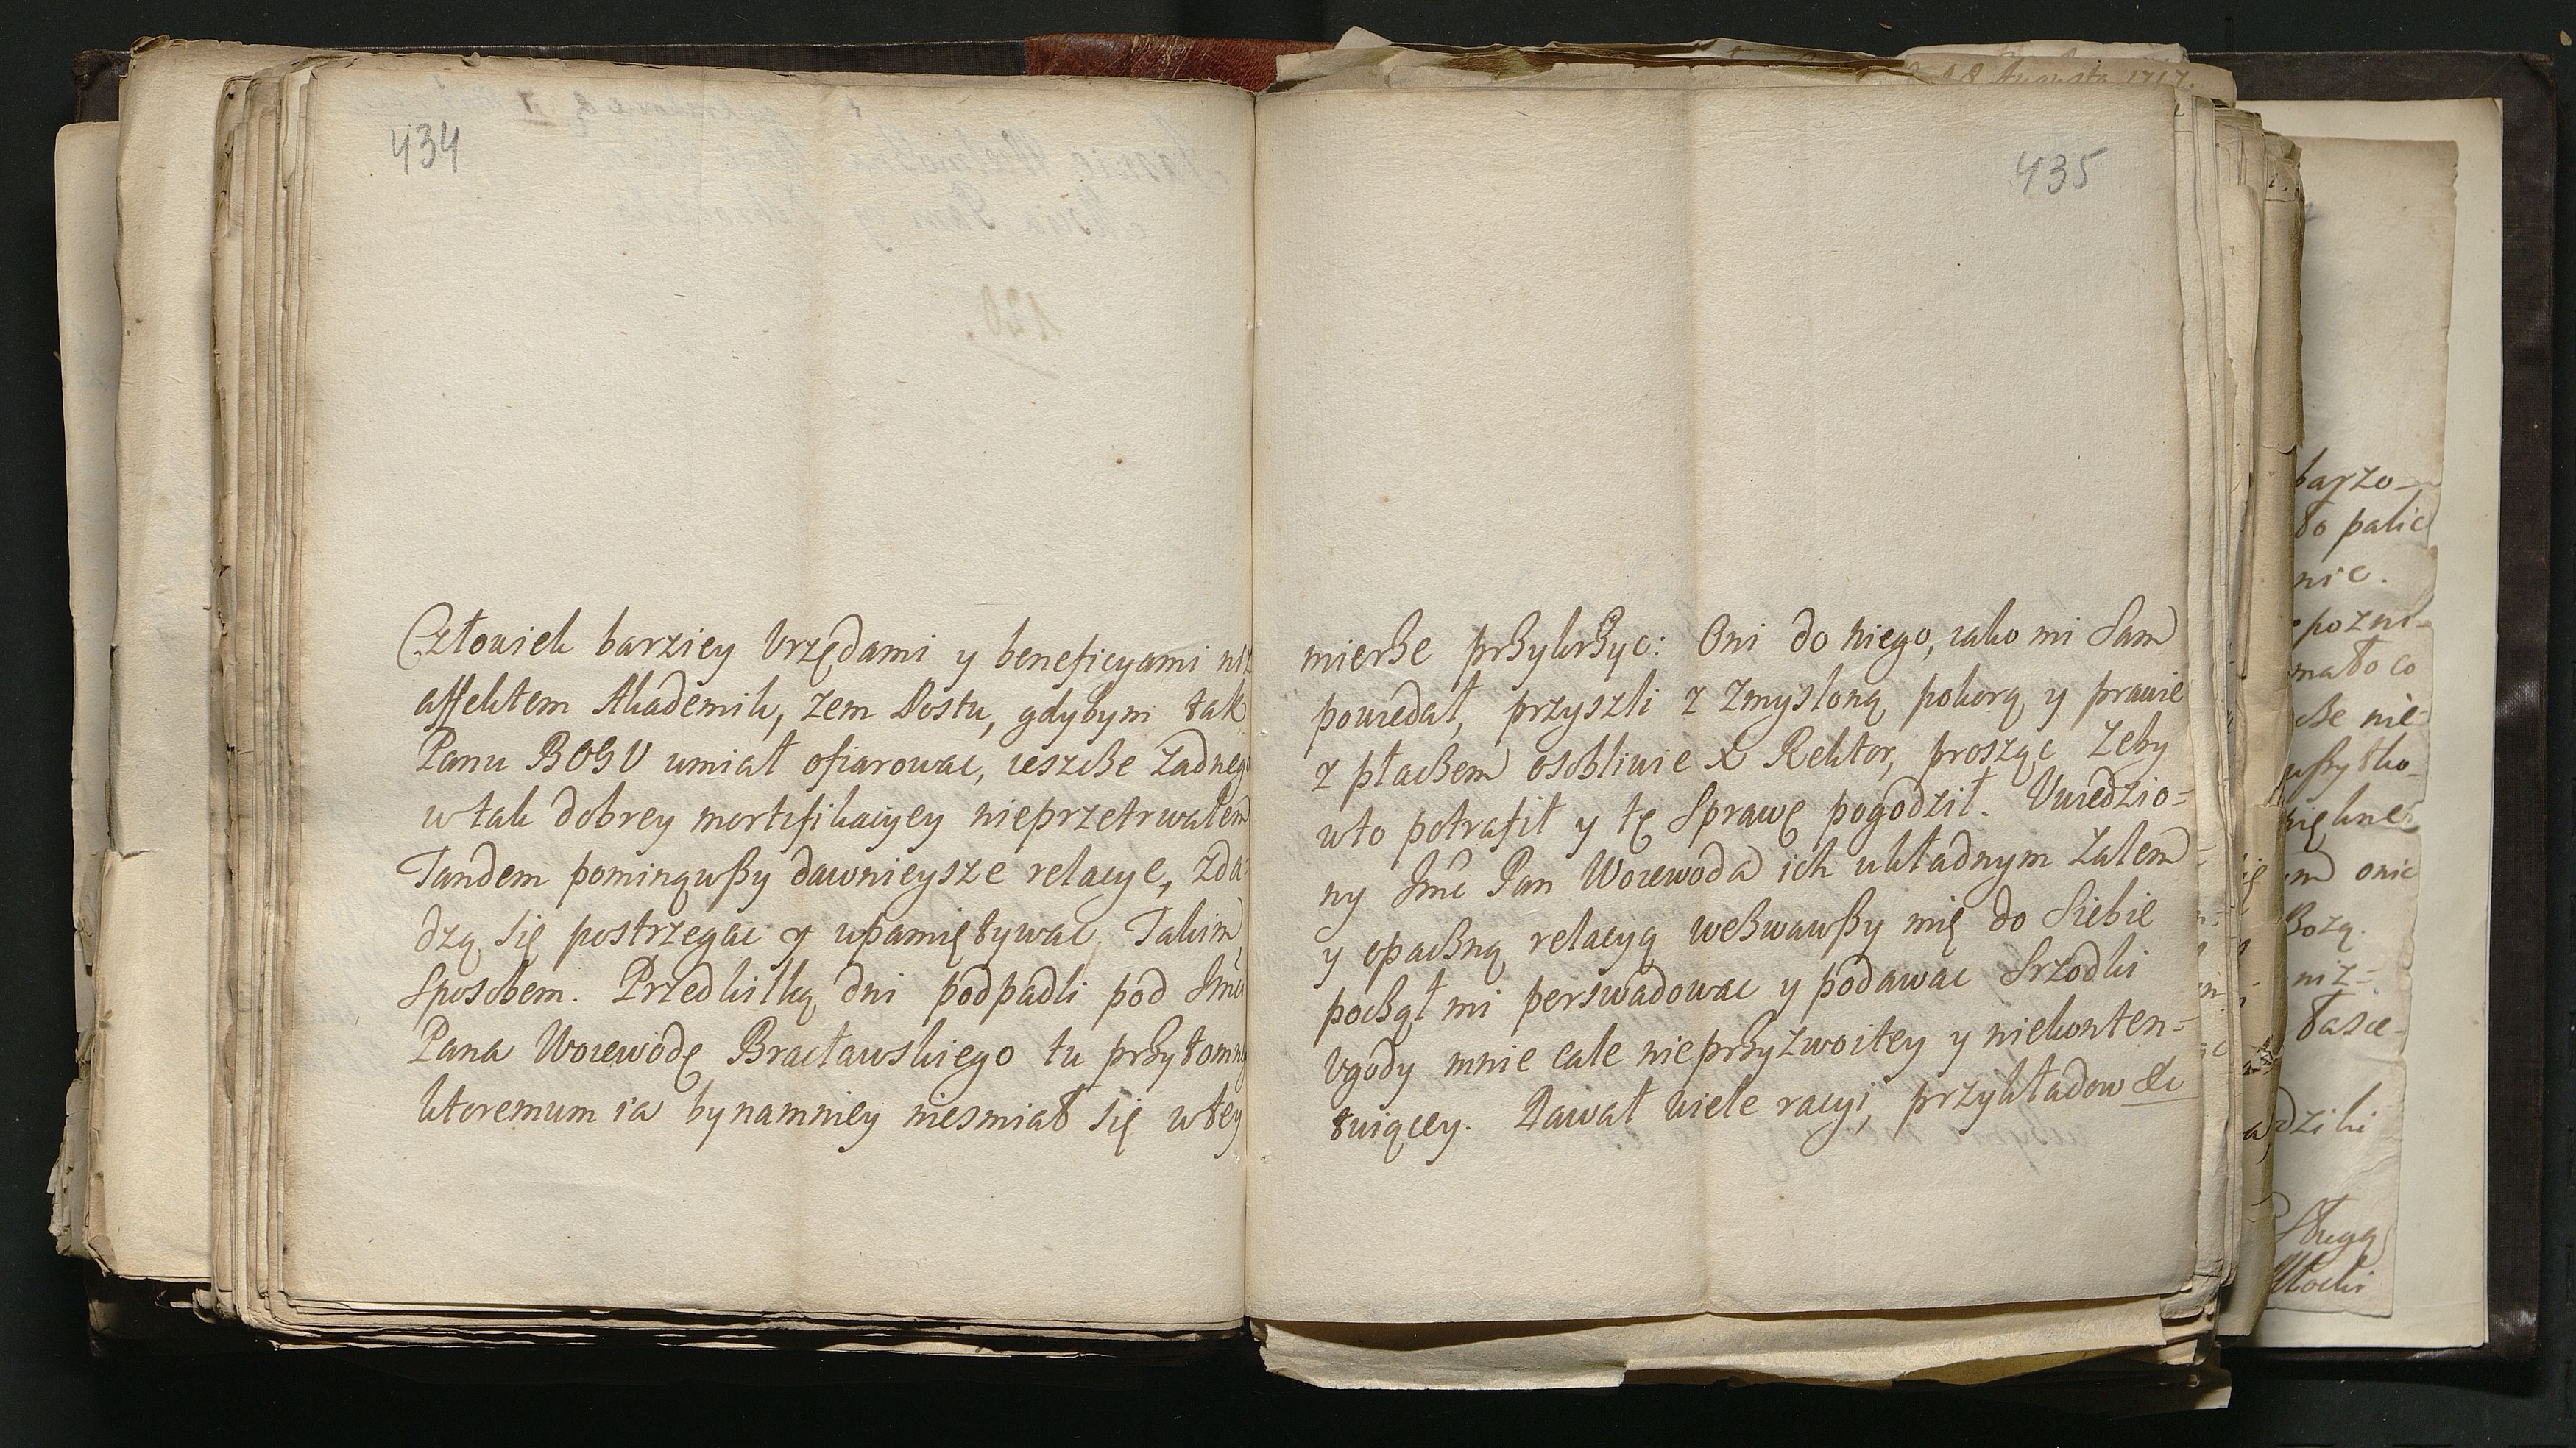 434
Człowiek barziey Vrzędami y beneficyami niż
affektem Akademik, Zem Postu, gdybym tak
Panu BOGU umiał ofiarowac, ieszcze Zadnego
w tak dobrey mortifikacyey nieprzetrwałem
Tandem pominąwszy dawnieysze relacye, Zda-
dzą się postrzegac y upamiętywac, Takim
Sposobem. Przedkilką dni podpadli pod Jmci
Pana Woiewodę Bracławskiego tu przytomn
ktoremum ia bynamniey niesmiał się wtey
435
mierze przykrzyc: Oni do niego, iako mi Sam
powiedał, przyszli z Zmysloną pokorą y prawie
z płaczem osobliwie X Rektor, prosząc Zeby
wto potrafił y tę Sprawę pogodził. Vwiedzio=
ny Jmć Pan Woiewoda ich układnym Zalem=
y opaczną relacyą wezwawszy mię do Siebie
począł mi perswadowac y podawac Srzodki
Vgody mnie cale nieprzyzwoitey y niekonten=
tuiącey. Dawał wiele racyi, przykładow &c
18 Augusta 1717.
barzo-
to palic
nic.
mało co
cze nie-
wszytko-
onie
Bozą.
niz-
łasce-
dziki
Sługą